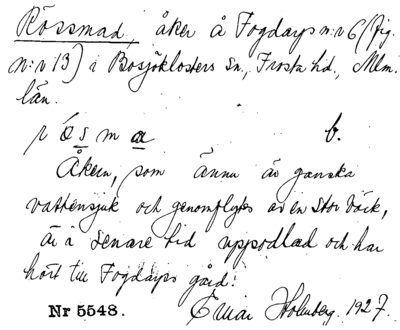 Rössmad, åker å Fogdarps n:r 6 (fig.
n:r 13) i Bosjöklosters Sn., Frosta hd., Mlm.
län.
r ö s m a b.
Åkern, som ännu är ganska
vattensjuk och genomflytes av en stor bäck,
är å senare tid uppodlad och har
hört till Fogdarps gård.
Nr 5548. Einar Holmberg. 1927.